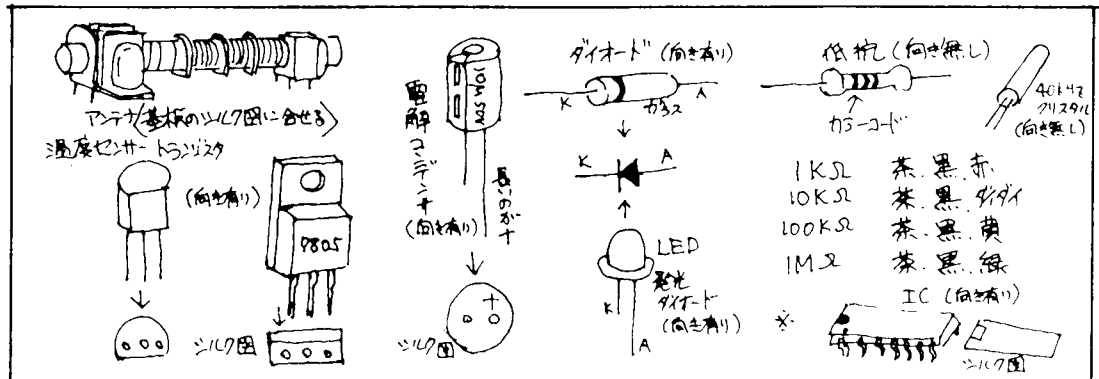 アンテナ(基板のシルク図に合せる)
温度センサー トランジスタ
(向き有り)
7805
シルク図
10μ 50V
電解コンデンサ
(向き有り)
長いのが+
+
シルク図
ダイオード (向き有り)
K
ガラス
A
K
A
LED
発光
ダイオード
(向き有り)
K
A
低抗 (向き無し)
カラーコード
40KHz
クリスタル
(向き無し)
1KΩ 茶.黒.赤
10KΩ 茶.黒.ダイダイ
100KΩ 茶.黒.黄
1MΩ 茶.黒.緑
※
IC (向き有り)
シルク図